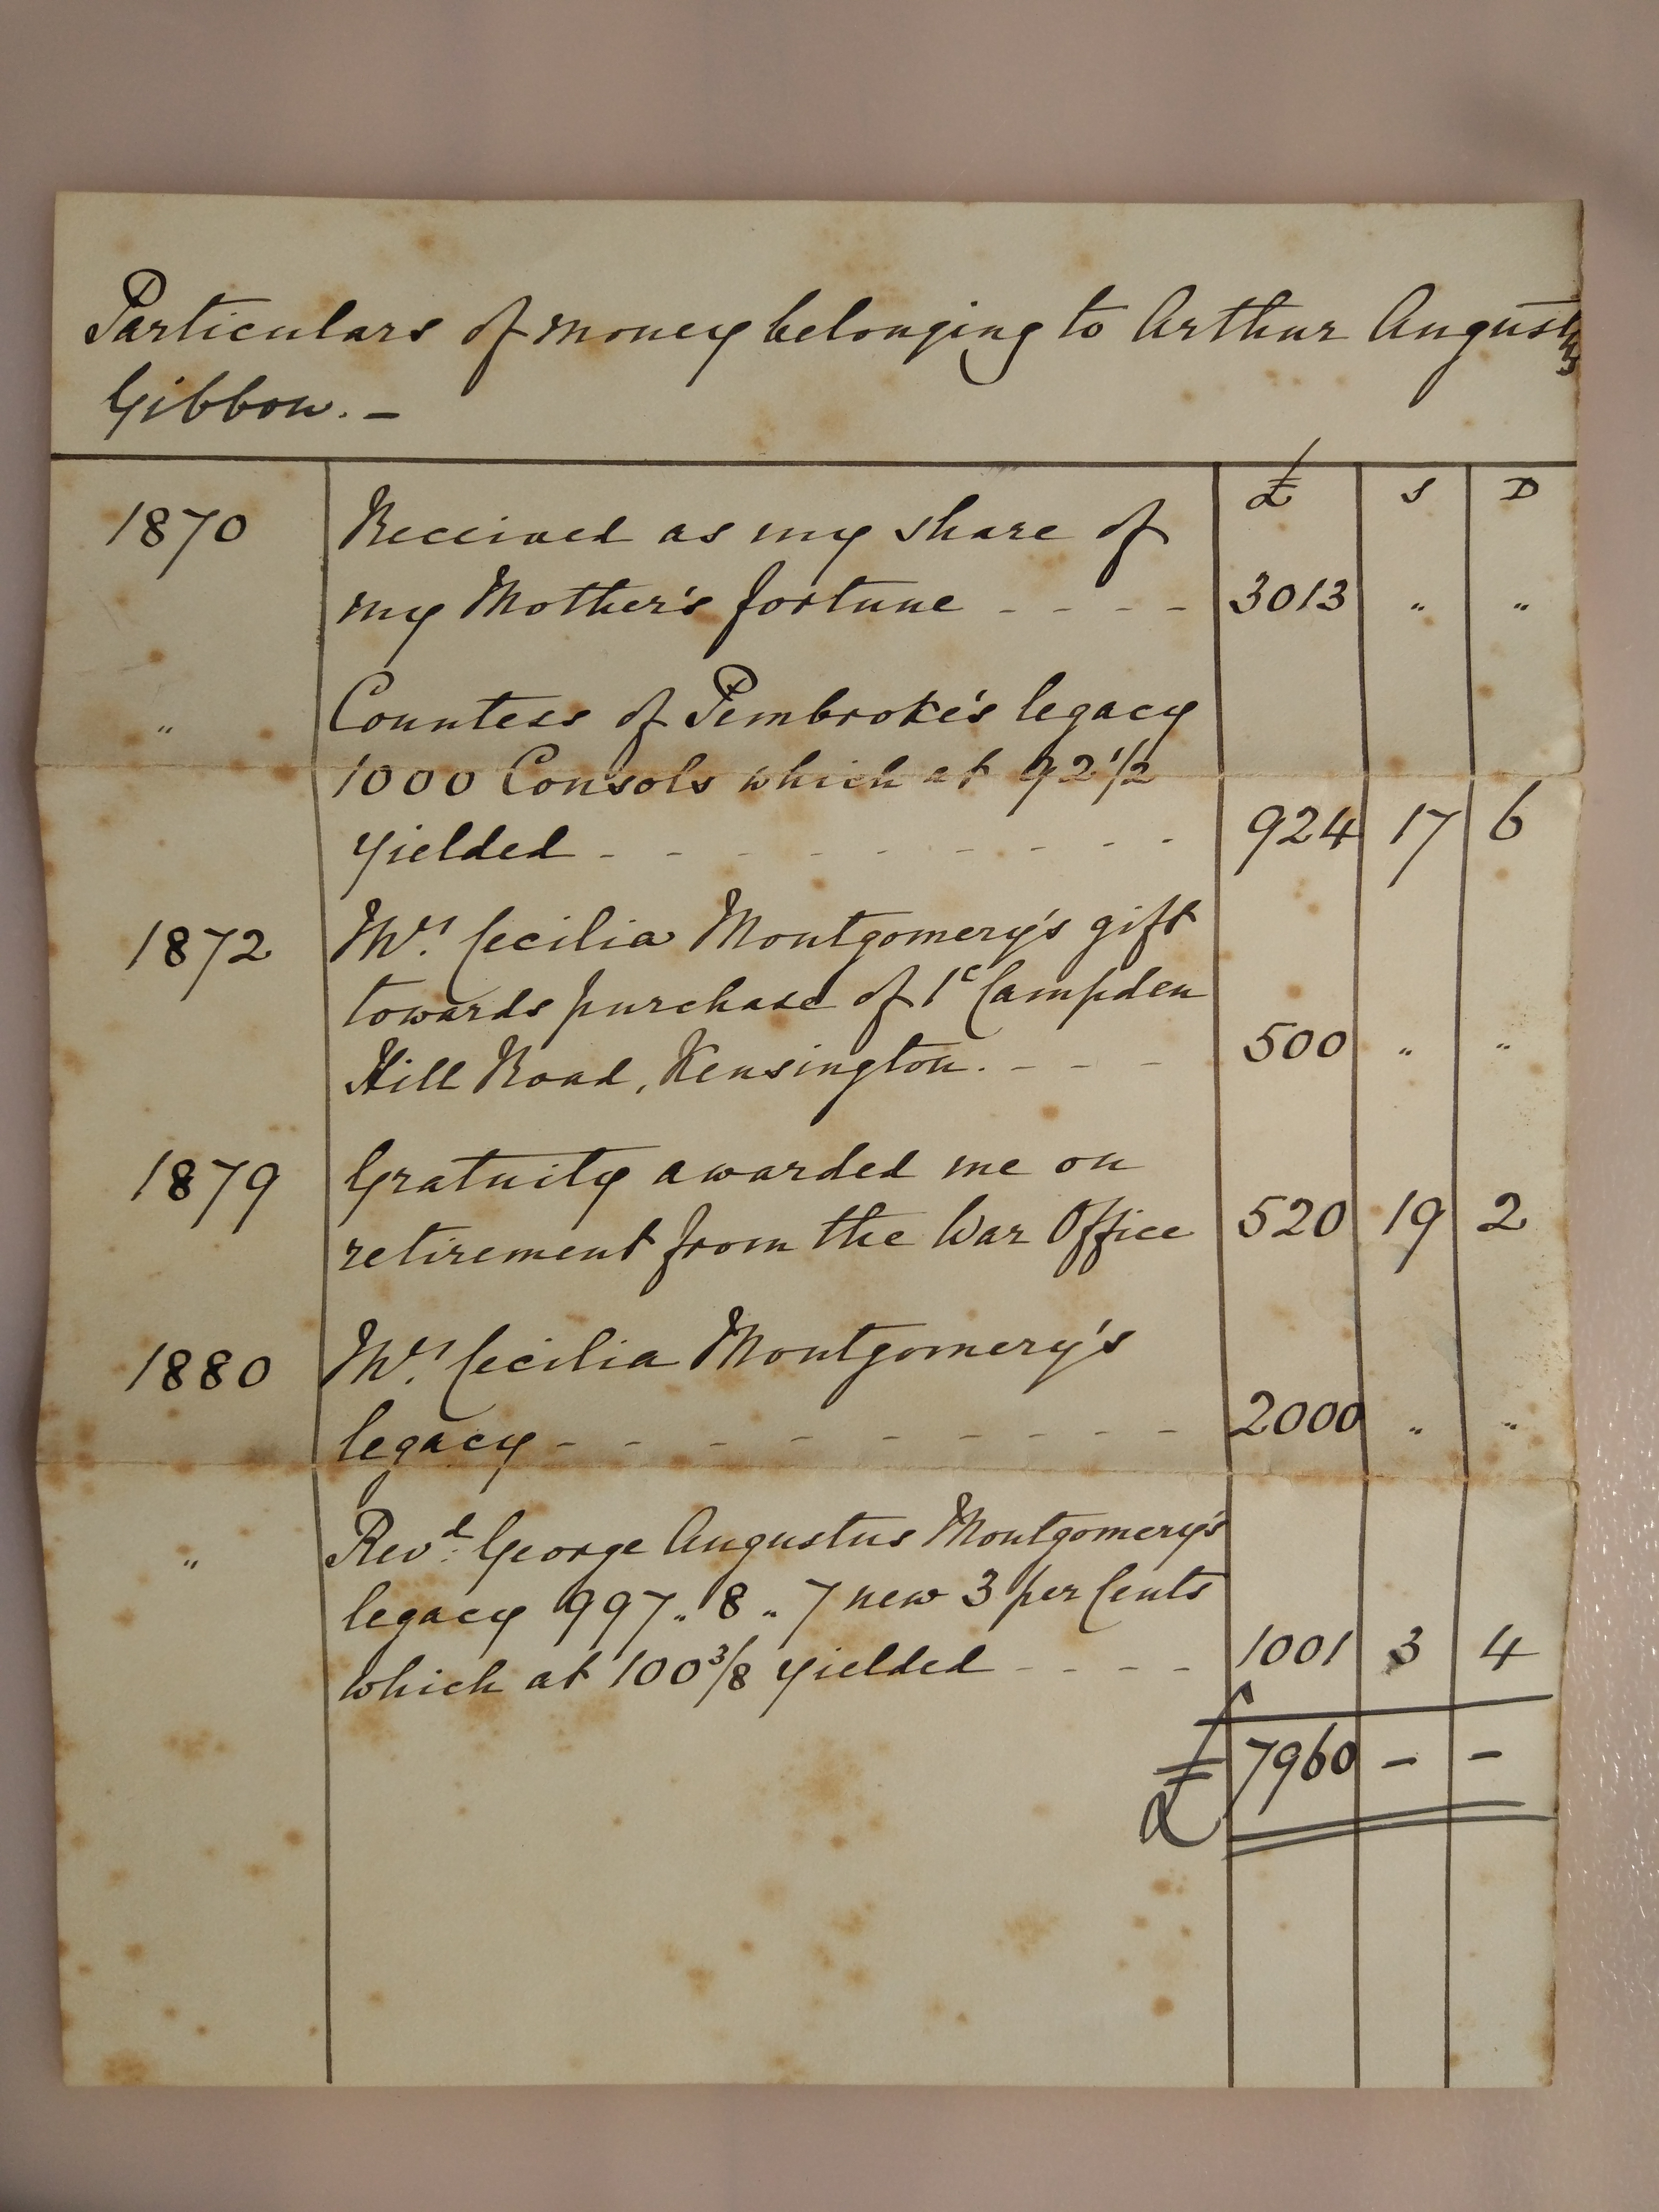 Particulars of money belonging to Arthur Augustus
Gibbon. –
£ S D
1870 Received as my share of
my Mother's fortune - - - - 3013 " "
" Countess of Pembroke's legacy
1000 Consols which at 92 1/2
yielded - - - - - - - - - 924 17 6
1872 Mrs. Cecilia Montgomery's gift
towards purchase of 1c Campden
Hill Road, Kensington. - - - 500 " "
1879 Gratuity awarded me on
retirement from the War Office 520 19 2
1880 Mrs. Cecilia Montgomery's
legacy - - - - - - - - - 2000 " "
" Revd. George Augustus Montgomery's
legacy 997 " 8 " 7 new 3 per Cents
which at 100 3/8 yielded - - - - 1001 3 4
£ 7960 – –